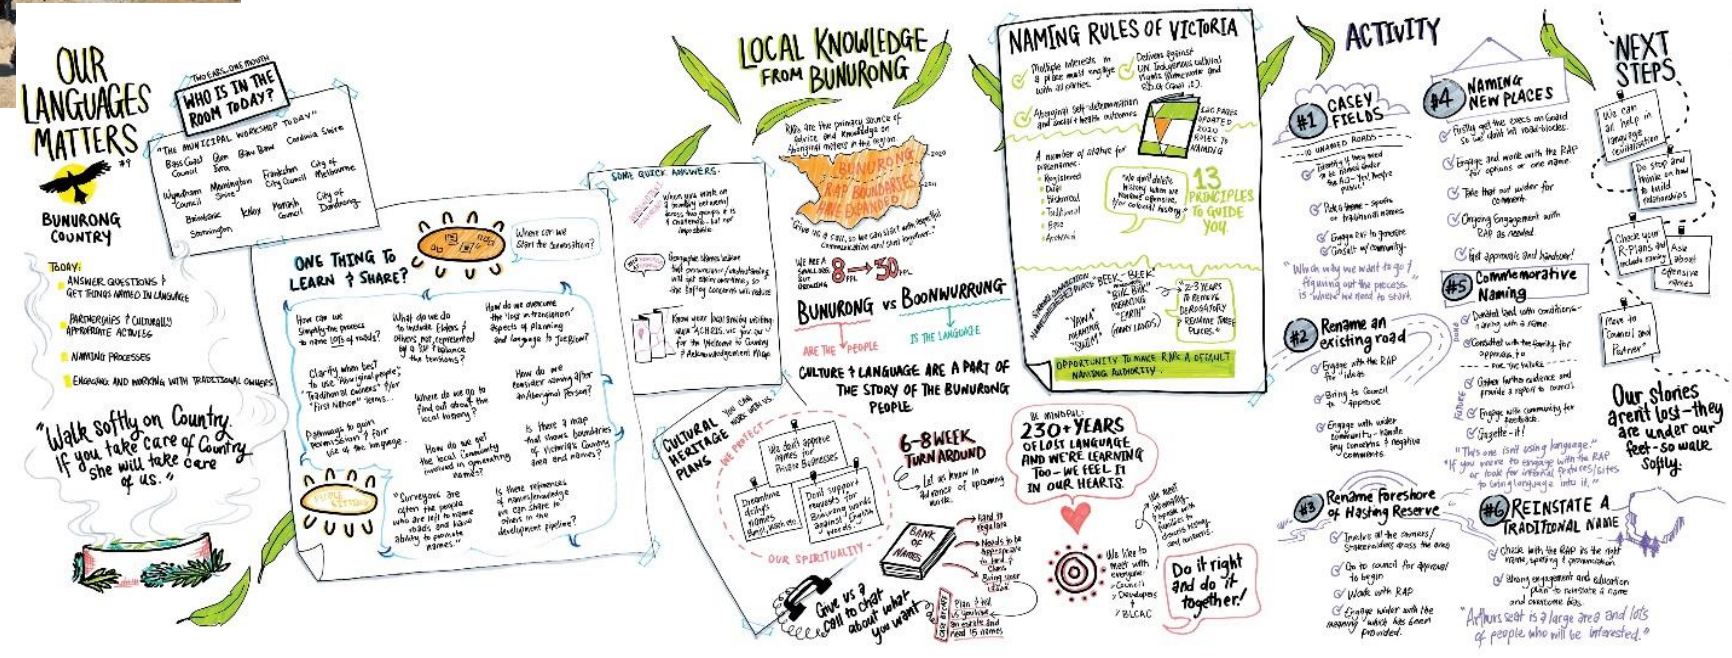 OUR
LANGUAGES
MATTERS
#9
BUNURONG
COUNTRY
TODAY:
ANSWER QUESTIONS &
GET THINGS NAMED IN LANGUAGE
PARTNERSHIPS & CULTURALLY
APPROPRIATE ACTIVITIES
NAMING PROCESSES
ENGAGING AND WORKING WITH TRADITIONAL OWNERS
"Walk softly on Country.
If you take care of Country
she will take care
of us."
TWO EARS, ONE MOUTH
WHO IS IN THE
ROOM TODAY?
"THE MUNICIPAL WORKSHOP TODAY"
Bass Coast
Council
Glen
Eira
Baw Baw
Cardinia Shire
Wyndham
Council
Mornington
Shire
Frankston
City Council
City of
Melbourne
Brimbank
Knox
Monash
Council
City of
Dandenong
Stonnington
ONE THING TO
LEARN & SHARE?
Where can we
start the conversation?
How can we
simplify the process
to name LOTS of roads?
What do we do
to include Elders &
others not represented
by a RAP & balance
the tensions?
How do we overcome
the "lost in translation"
aspects of planning
and language to
Clarity when best
to use "Aboriginal people",
"Traditional owners" &/or
"First Nation" terms...
Where do we go to
find out about the
local history?
How do we
consider naming after
an Aboriginal Person?
Pathways to gain
permission & fair
use of the language.
How do we get
the local community
involved in generating
names?
Is there a map
that shows boundaries
of Victoria's Country
area and names?
"Surveyors are
often the people
who are left to name
roads and have
ability to promote
names."
Is there references
of names/knowledge
we can share to
others in the
development pipeline?
SOME QUICK ANSWERS.
When you work on
a boundary between/
across two groups it is
a challenge - but not
impossible
Geographic Names Victoria
but pronunciation/understanding
will get easier over time, so
the safety concerns will reduce
for the Welcome to Country
& Acknowledgement Maps
LOCAL KNOWLEDGE
FROM BUNURONG
RAPs are the primary source of
advice and knowledge on
Aboriginal matters in the region.
BUNURONG
RAP BOUNDARIES
HAVE EXPANDED
2020
"Give us a call, so we can start with respectful
communication and start together."
WE ARE A
SMALL ORG
BUT
GROWING
8 PPL → 30 PPL
BUNURONG vs BOONWURRUNG
ARE THE PEOPLE
IS THE LANGUAGE
CULTURE & LANGUAGE ARE A PART OF
THE STORY OF THE BUNURONG
PEOPLE
CULTURAL
HERITAGE
PLANS
YOU CAN
WORK WITH US
WE PROTECT
We don't approve
names for
Private Businesses
Dreamtime
deity's
names
Bunjil, Waa etc.
Don't support
requests for
Bunurong words
against English
words.
OUR SPIRITUALITY
Give us a
call to chat
about what
you want
6-8 WEEK
TURN AROUND
Let us know in
advance of upcoming
work.
BANK
OF
NAMES
Hard to
regulate
Needs to be
appropriate
to land &
Clans
Bring your
ideas
Plan & tell
us you have
an estate and
need 15 names
BE MINDFUL:
230+ YEARS
OF LOST LANGUAGE
AND WE'RE LEARNING
TOO - WE FEEL IT
IN OUR HEARTS.
We like to
meet with
everyone
> Council
> Developers
+
> BLCAC
We meet
internally,
& speak with
families to
discuss history
and concerns.
Do it right
and do it
together!
NAMING RULES OF VICTORIA
Multiple interests in
a place must engage
with all parties.
Delivers against
UN Indigenous cultural
rights framework and
Aboriginal self-determination
and social & health outcomes
PAGES
UPDATED
2020
RULES TO
NAMING
A number of status for
placenames:
Registered
Dual
Historical
Traditional
"We don't delete
history when we
remove offensive,
&/or colonial history."
13
PRINCIPLES
TO GUIDE
YOU.
STRONG CONNECTION
NAMES TO PLACE
"YAWA"
MEANING
"SWIM"
"BEEK - BEEK"
"BIIK BIIK"
MEANING
"EARTH"
(MANY LANDS)
"2-3 YEARS
TO REMOVE
DEROGATORY
& RENAME THESE
PLACES."
OPPORTUNITY TO MAKE RNE A DEFAULT
NAMING AUTHORITY.
ACTIVITY
#1 CASEY
FIELDS
10 UNAMED ROADS
Identify if they need
to be named under
the Act - Yes! They're
public!
Pick a theme - sports
or traditional names
Engage RAP to generate
Consult w/ community.
"Which way we want to go &
figuring out the process
is where we need to start.
#2 Rename an
existing road
Engage with the RAP
for ideas
Bring to Council
to approve
Engage with wider
community - handle
any concerns & negative
comments.
#3 Rename Foreshore
of Hasting Reserve
Involve all the owners/
stakeholders across the area
Go to council for approval
to begin
Work with RAP
Engage wider with the
meaning which has been
provided.
#4 NAMING
NEW PLACES
Firstly get the execs on board
so we don't hit road-blocks.
Engage and work with the RAP
for options or one name.
Take that out wider for
comment.
Ongoing Engagement with
RAP as needed.
Get approvals and handover!
#5 Commemorative
Naming
Donated land with conditions -
naming with a name.
Consulted with the family for
approvals, to
FOR THE FUTURE
FUTURE
Gather further evidence and
provide a report to council
Engage with community for
feedback.
Gazette - it!
"This one isn't using language."
"If you were to engage with the RAP
or look for internal features/sites
to bring language into it."
#6 REINSTATE A
TRADITIONAL NAME
Check with the RAP its the right
name, spelling & pronunciation.
Strong engagement and education
plan to reinstate a name
and overcome bias.
"Arthurs seat is a large area and lots
of people who will be interested."
NEXT
STEPS
We can
all help in
language
revitalisation
Do stop and
think on how
to build
relationships
Check your
R-Plans and
include naming
Ask
about
offensive
names
Move to
"Council and
Partner"
Our stories
aren't lost - they
are under our
feet - so walk
softly.